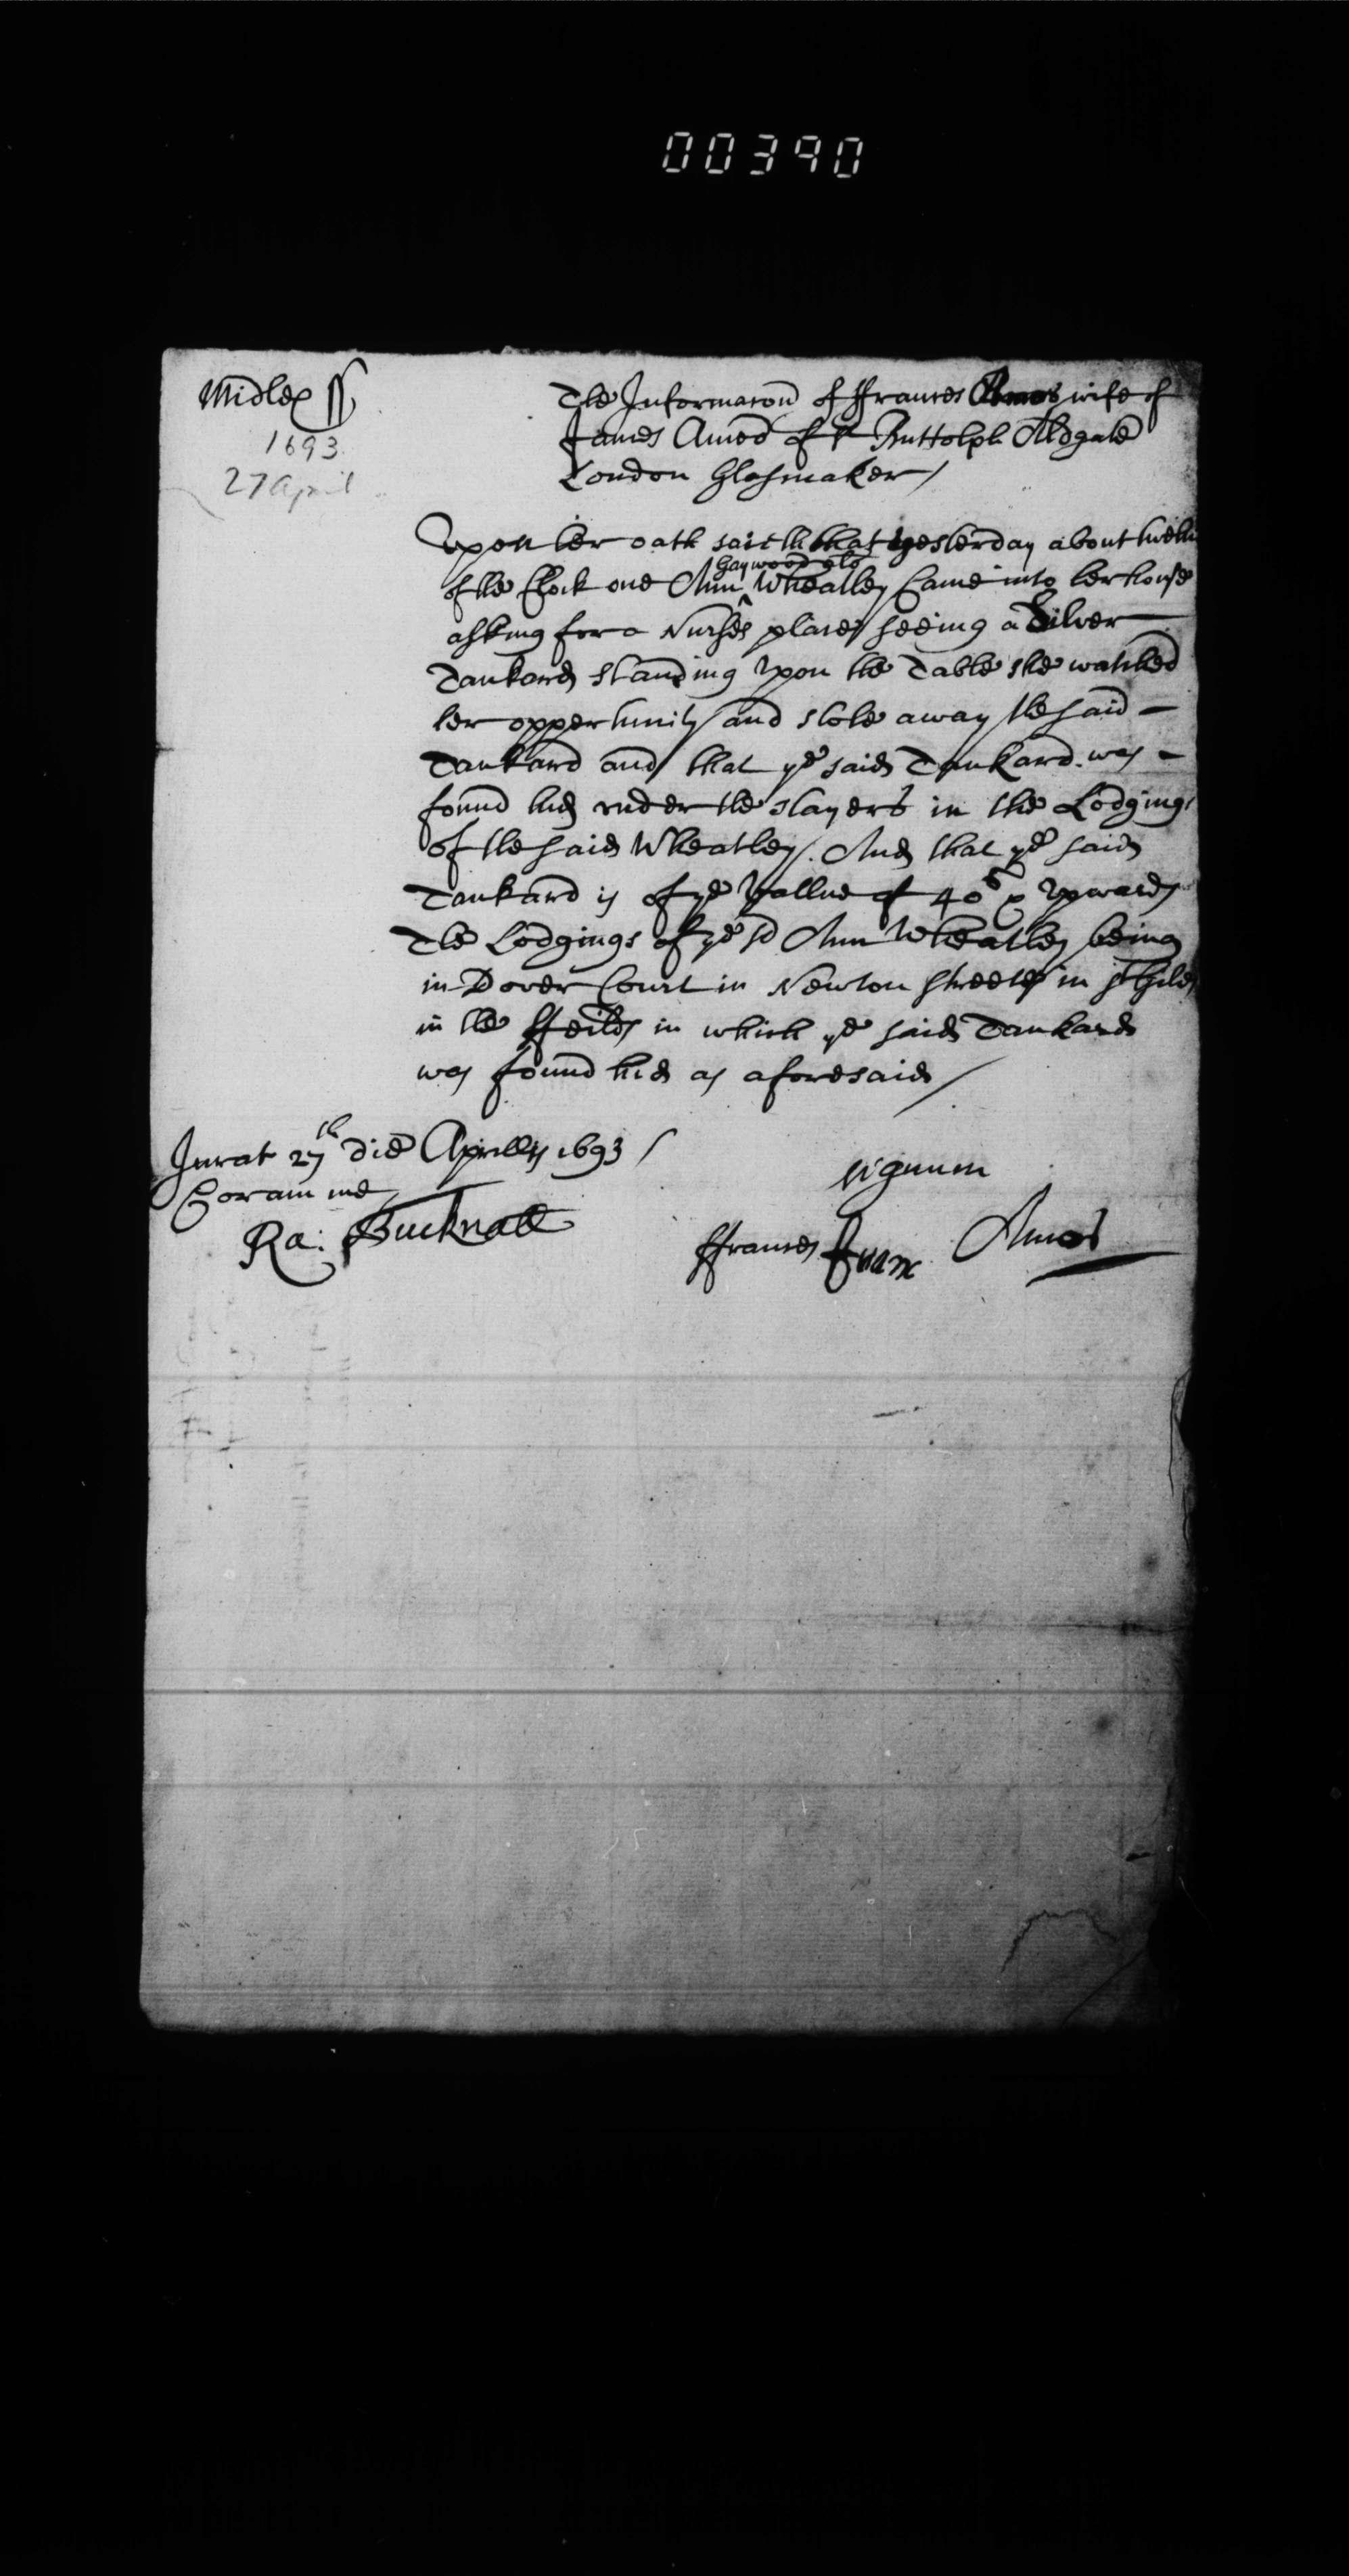 00390
Midlex ss
1693
27 April
The Informacon of ffrances Amos wife of
James Amos of St Buttolph Aldgate
London Glasmaker /
Vpon her oath saith that yesterday about twelve
of the Clock one Ann ^ Wheatley Came into her house
Gaywood als
asking for a Nurses place / seeing a Silver —
Tankard standing vpon the Table she watched
her oppertunity and stole away the said —
Tankard and that ye said Tankard was —
found hid vnder the stayers in the Lodgings
of the said Wheatley. And that ye said
Tankard is of ye vallue of 40s & vpwards
The Lodgings of ye sd Ann Wheatley being
in Dover Court in Newton streete in St Giles
in the ffeilds in which ye said Tankard
was found hid as aforesaid /
Jurat 27th die Aprillis 1693 /
Coram me
Ra: Bucknall
signum
ffrances Amos